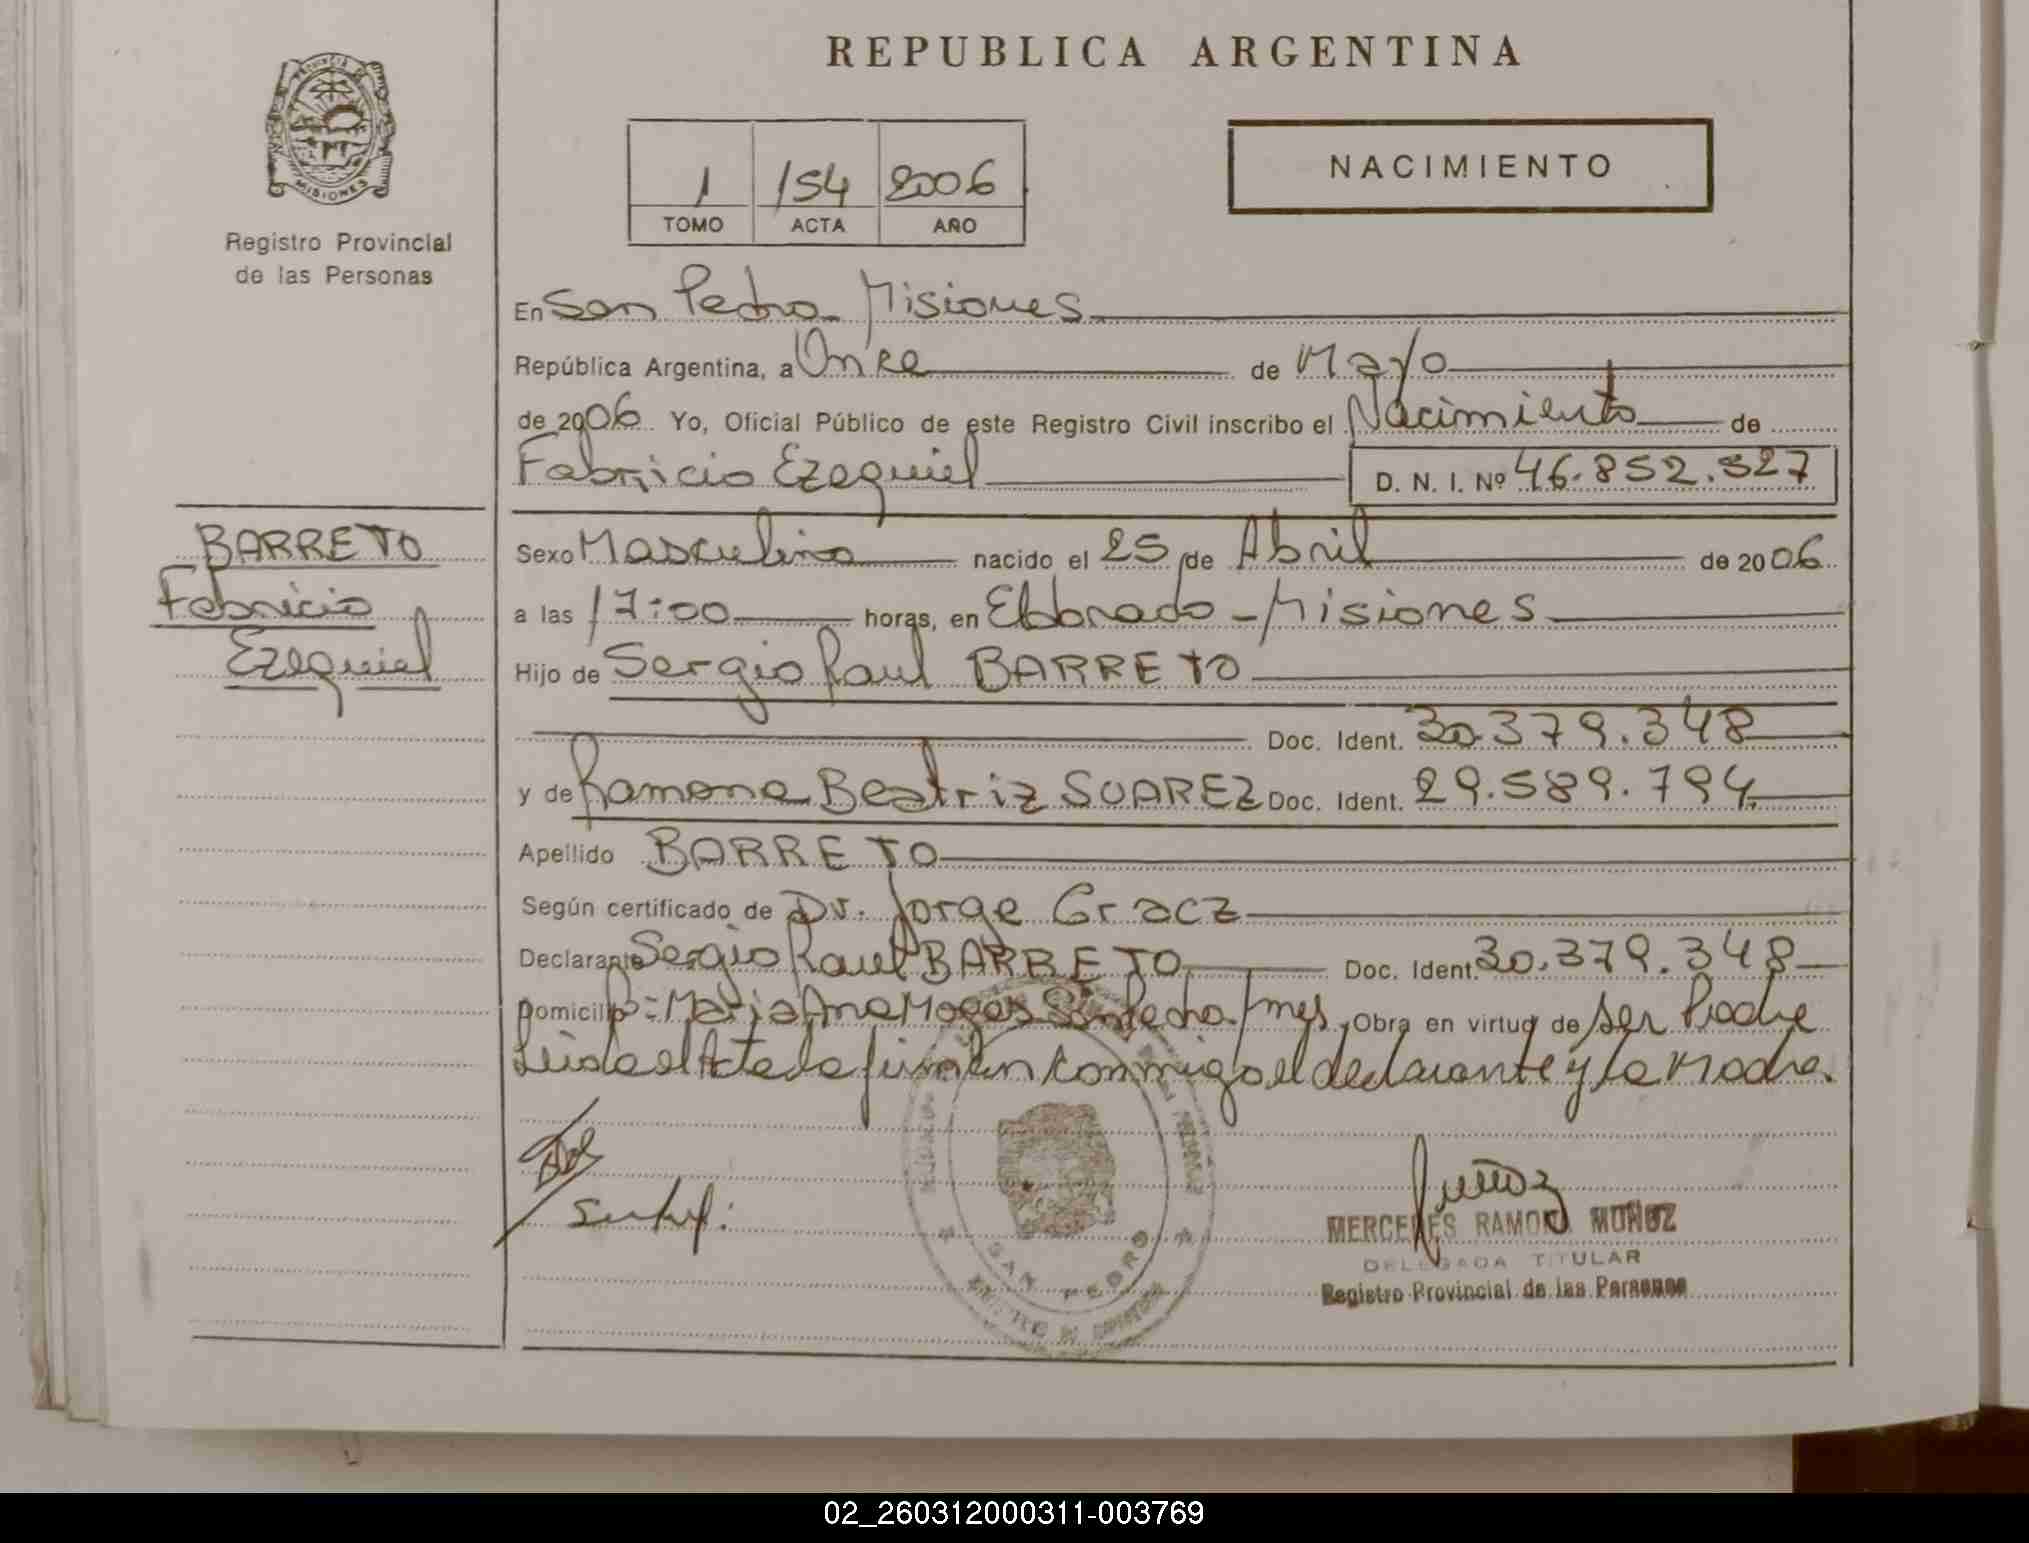 REPUBLICA ARGENTINA
PROVINCIA DE
MISIONES
Registro Provincial
de las Personas
1 154 2006
TOMO ACTA AÑO
NACIMIENTO
En San Pedro - Misiones
República Argentina, a Once de Mayo
de 2006 Yo, Oficial Público de este Registro Civil inscribo el Nacimiento de
Fabricio Ezequiel D. N. I. Nº 46.852.527
BARRETO
Fabricio
Ezequiel
Sexo Masculino nacido el 25 de Abril de 2006
a las 17:00 horas, en Eldorado - Misiones
Hijo de Sergio Raul BARRETO
Doc. Ident. 30.379.348
y de Ramona Beatriz SUAREZ Doc. Ident. 29.589.794
Apellido BARRETO
Según certificado de Dr. Jorge Gracz
Declarante Sergio Raul BARRETO Doc. Ident. 30.379.348
Domicilio: Maria Ana Mogas San Pedro Mnes Obra en virtud de ser Padre
Leida el Acta la firman conmigo el declarante y la Madre.
SAN PEDRO
MERCEDES RAMONA MUÑOZ
DELEGADA TITULAR
Registro Provincial de las Personas
02_260312000311-003769